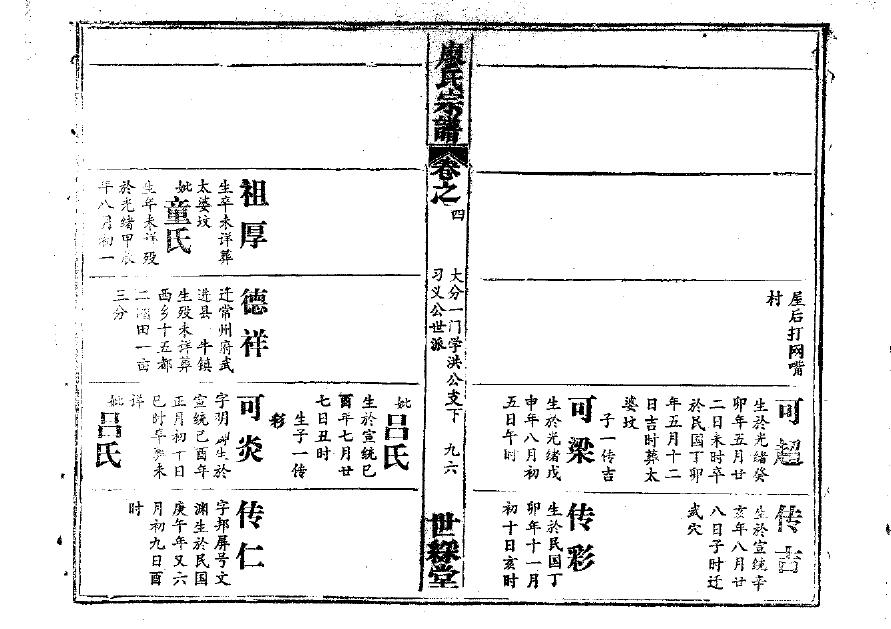 屋后打网嘴
村
可超
生於光緒癸
卯年五月廿
二日未时卒
於民国丁卯
年五月十二
日吉时葬太
婆坟
子一传吉
可梁
生於光緒戊
申年八月初
五日午时
传吉
生於宣统辛
亥年八月廿
八日子时迁
武穴
传彩
生於民国丁
卯年十一月
初十日亥时
廖氏宗譜
卷之四
大分一门学洪公支下
习义公世派
九六
世綵堂
祖厚
生卒未详葬
太婆坟
妣童氏
生年未详殁
於光緒甲辰
年八月初一
德祥
迁常州府武
进县 牛镇
生殁未详葬
西乡十五都
二 田一亩
三分
妣吕氏
生於宣统己
酉年七月廿
七日丑时
生子一传
彩
可炎
字阴 生於
宣统己酉年
正月初十日
巳时卒葬未
详
妣吕氏
传仁
字邦屏号文
渊生於民国
庚午年又六
月初九日酉
时